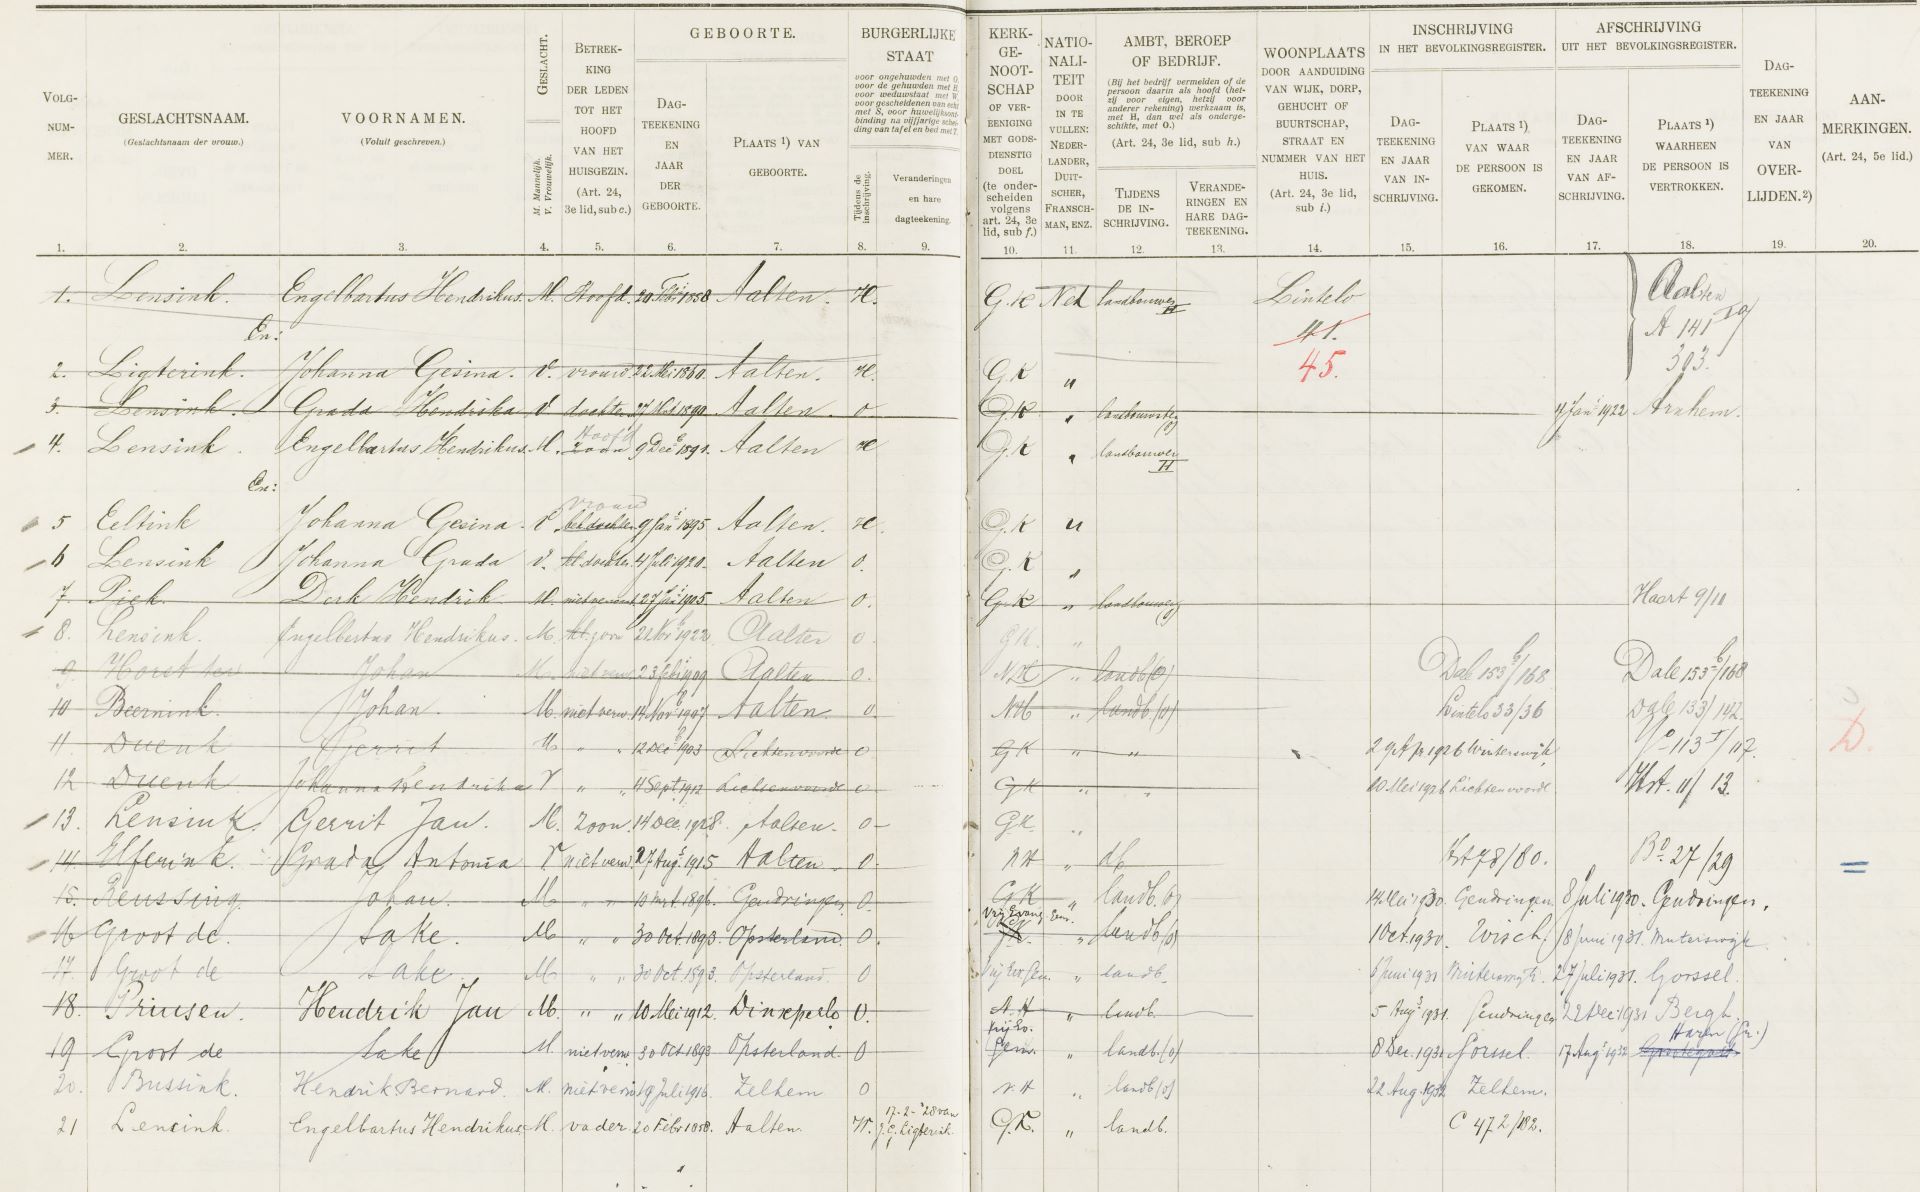 VOLG-NUM-MER.
GESLACHTSNAAM.
(Geslachtsnaam der vrouw.)
VOORNAMEN.
(Voluit geschreven.)
GESLACHT.
M. Mannelijk. V. Vrouwelijk.
BETREK-KING DER LEDEN TOT HET HOOFD VAN HET HUISGEZIN. (Art. 24, 3e lid, sub c.)
GEBOORTE.
DAG-TEEKENING EN JAAR DER GEBOORTE.
PLAATS 1) VAN GEBOORTE.
BURGERLIJKE STAAT
voor ongehuwden met O, voor de gehuwden met H, voor weduwstaat met W, voor gescheidenen van echt met S, voor huwelijksont-binding na vijfjarige schei-ding van tafel en bed met T.
Tijdens de inschrijving.
Veranderingen en hare dagteekening.
KERK-GE-NOOT-SCHAP OF VER-EENIGING MET GODS-DIENSTIG DOEL (te onder-scheiden volgens art. 24, 3e lid, sub f.)
NATIO-NALI-TEIT DOOR IN TE VULLEN: NEDER-LANDER, DUIT-SCHER, FRANSCH-MAN, ENZ.
AMBT, BEROEP OF BEDRIJF.
(Bij het bedrijf vermelden of de persoon daarin als hoofd (het-zij voor eigen, hetzij voor anderer rekening) werkzaam is, met H, dan wel als onderge-schikte, met O.)
(Art. 24, 3e lid, sub h.)
TIJDENS DE IN-SCHRIJVING.
VERANDE-RINGEN EN HARE DAG-TEEKENING.
WOONPLAATS DOOR AANDUIDING VAN WIJK, DORP, GEHUCHT OF BUURTSCHAP, STRAAT EN NUMMER VAN HET HUIS. (Art. 24, 3e lid, sub i.)
INSCHRIJVING IN HET BEVOLKINGSREGISTER.
DAG-TEEKENING EN JAAR VAN IN-SCHRIJVING.
PLAATS 1) VAN WAAR DE PERSOON IS GEKOMEN.
AFSCHRIJVING UIT HET BEVOLKINGSREGISTER.
DAG-TEEKENING EN JAAR VAN AF-SCHRIJVING.
PLAATS 1) WAARHEEN DE PERSOON IS VERTROKKEN.
DAG-TEEKENING EN JAAR VAN OVER-LIJDEN. 2)
AAN-MERKINGEN. (Art. 24, 5e lid.)
1. 2. 3. 4. 5. 6. 7. 8. 9. 10. 11. 12. 13. 14. 15. 16. 17. 18. 19. 20.
1. Lensink. Engelbartus Hendrikus. M. Hoofd. 20 Febr 1858 Aalten. H. G.K Ned landbouwer H Lintelo Aalten
En: 41. A 141
2. Ligterink. Johanna Gesina. V. vrouw 22 Mei 1860. Aalten. H. GK " 45. 303.
3. Lensink. Grada Hendrika V dochter 1890. Aalten. O GK " (O) Jan 1922 Arnhem.
4. Lensink. Engelbartus Hendrikus. M. Hoofd zoon 9 Dec 1891. Aalten H GK " landbouwer H
En:
5 Eeltink Johanna Gesina. V vrouw 9 Jan 1895. Aalten. H. GK "
6 Lensink Johanna Grada V. kl. dochter 4 Juli 1920. Aalten O. GK "
7. Piek. Derk Hendrik. M. 27 Jan 1905. Aalten O. GK " Haart 9/11
8. Lensink. Engelbertus Hendrikus. M. kl. zoon 21 Nov 1922 Aalten O. GK. "
9 Horst ter Johan M. niet verw 23 Feb 1909 Aalten O. NH " landb (O) Dale 153 b/168 Dale 153 b/168
10 Beernink. Johan. M. niet verw. 14 Nov 1907 Aalten. O. NH " landb. (O) Lintelo 33/36 Dale 133/142
11. Duenk Gerrit M " " 12 Dec 1903 Lichtenvoorde O GK " " 29 Apr 1926 Winterswijk D.
12 Duenk. Johanna Hendrika V " " 4 Sept 1912 Lichtenvoorde O GK " " 10 Mei 1926 Lichtenvoorde Hrt. 11/13.
13. Lensink. Gerrit Jan. M. Zoon. 14 Dec. 1928. Aalten. O- GK. "
14. Elferink. Grada Antonia V niet verw 27 Aug 1915 Aalten O NH " db Hrt 78/80. Bo 27/29
15. Reussing. Johan. M " " 10 mrt. 1896. Gendringen. O. GK " landb. (O) 14 Mei 1930. Gendringen. 8 Juli 1930. Gendringen.
16 Groot de. Sake. M. " " 30 Oct. 1893. Opsterland. O. " landb (O) 1 Oct. 1930. Wisch. 8 Juni 1931. Winterswijk.
17. Groot de Sake. M " " 30 Oct. 1893 Opsterland. O " landb. 6 Juni 1931 Winterswijk. 27 Juli 1931. Gorssel.
18. Prinsen. Hendrik Jan M. " " 10 Mei 1912. Dinxperlo O. " landb. 5 Aug 1931. Gendringen 22 Dec 1931 Bergh.
19 Groot de Sake M. niet verw 30 Oct. 1893 Opsterland. O " landb. (O) 8 Dec. 1931 Gorssel. 17 Aug 1932 Haren (Gr.)
20. Bussink. Hendrik Bernard. M. niet verw 19 Juli 1916. Zelhem O N.H " landb (O) 22 Aug. 1932 Zelhem.
21 Lensink. Engelbartus Hendrikus. M. vader 20 Febr 1858. Aalten. W. 17-2-'28 van J.G. Ligterink. G.K. " landb. C 472/182.